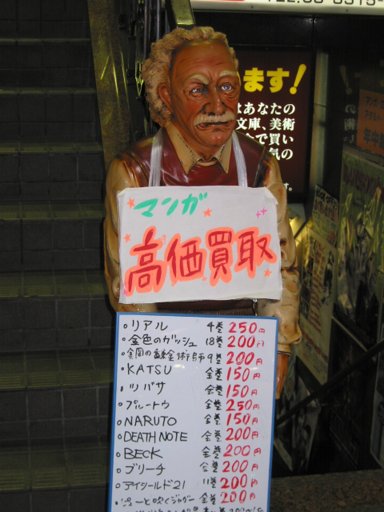 TEL.03-5575-
ます!
はあなたの
文庫、美術
で買い
気の
マンガ
高価買取
リアル 4巻 250円
金色のガッシュ 18巻 200円
鋼の錬金術師 9巻 200円
KATSU 全巻 150円
ツバサ 全巻 150円
プルートウ 全巻 250円
NARUTO 全巻 150円
DEATH NOTE 全巻 200円
BECK 全巻 200円
ブリーチ 全巻 200円
アイシールド21 11巻 200円
ピューと吹くジャガー 全巻 200円